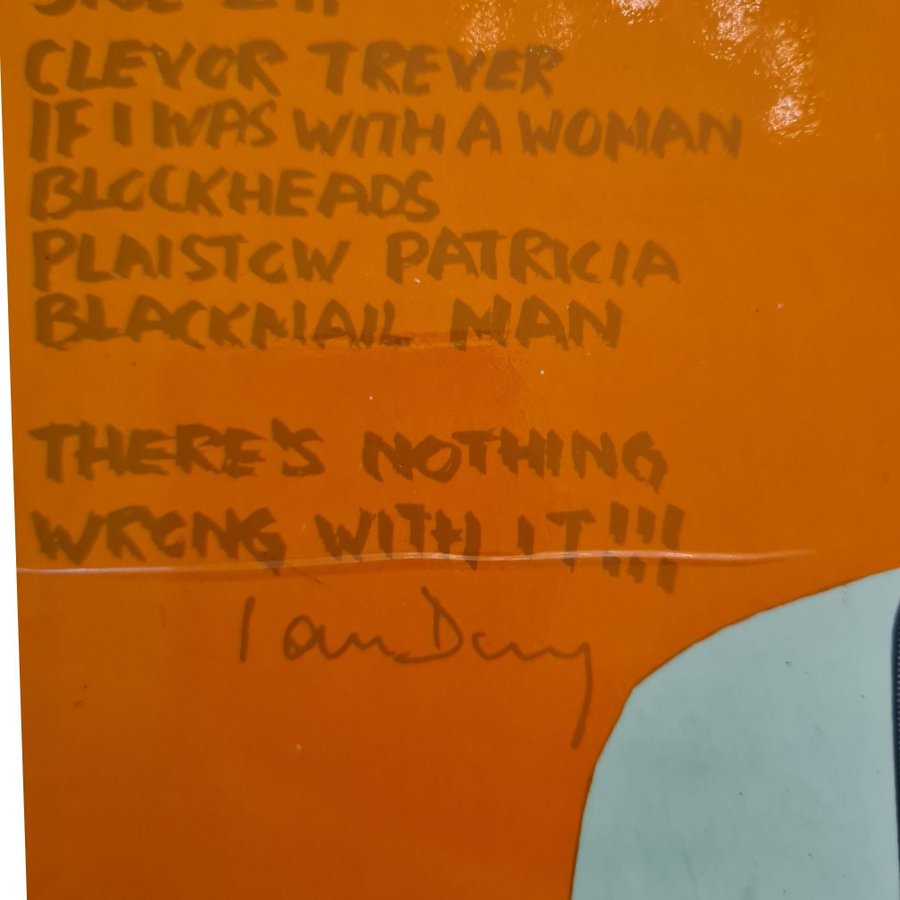 CLEVOR TREVER
IF I WAS WITH A WOMAN
BLOCKHEADS
PLAISTOW PATRICIA
BLACKMAIL MAN
THERE'S NOTHING
WRONG WITH IT!!!
Ian Dury